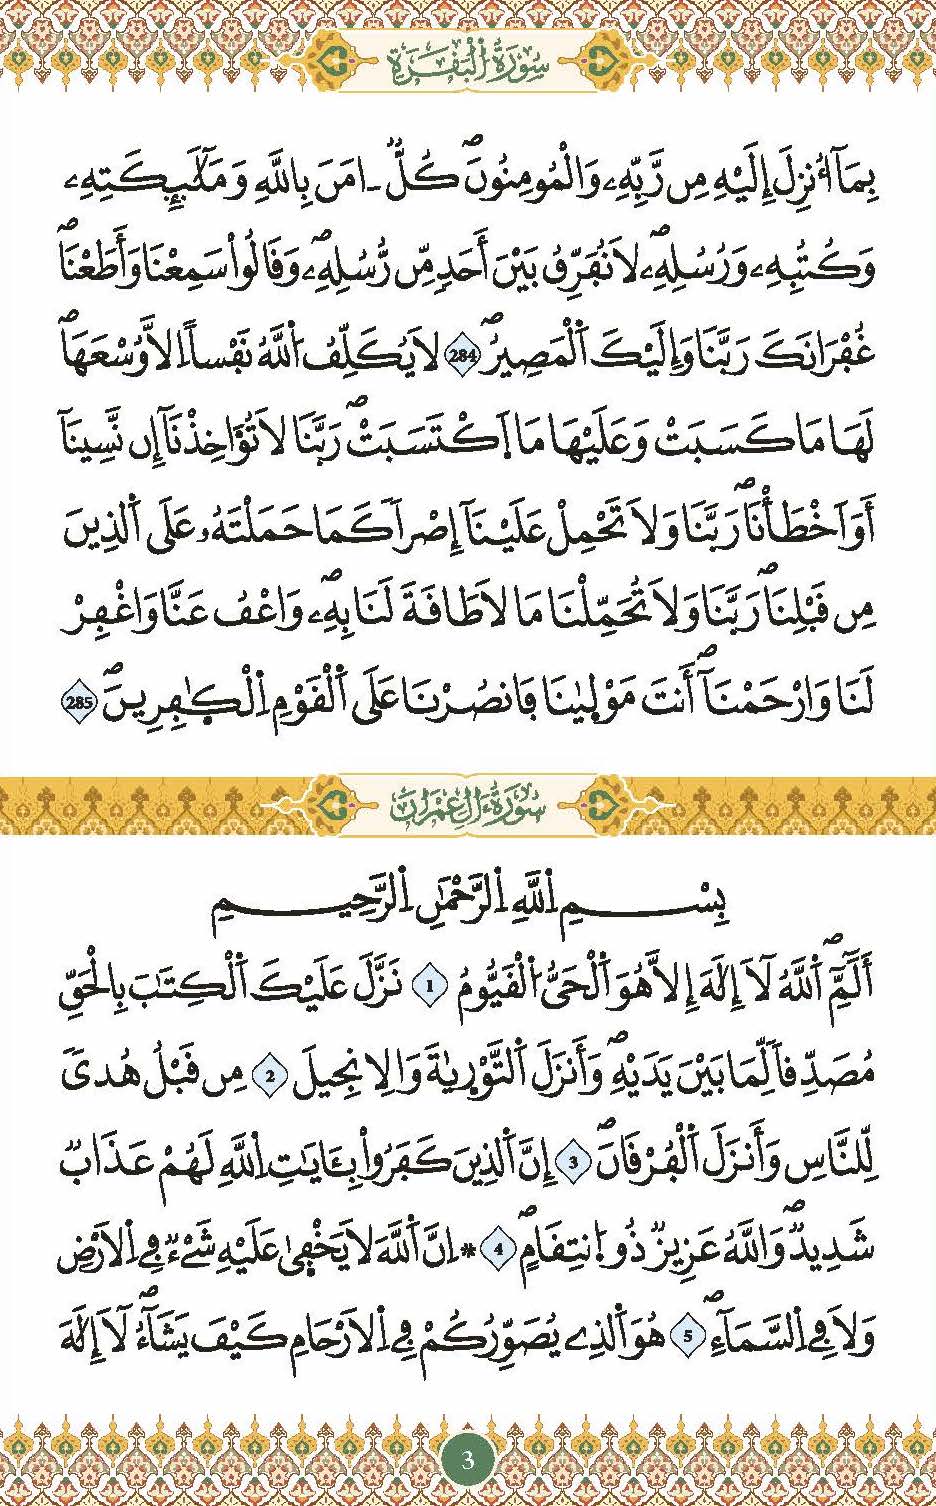 سُورَةُ الْبَقَرَةِ
بِمَآ أُنزِلَ إِلَيْهِ مِن رَّبِّهِۦ وَالْمُومِنُونَۖ كُلٌّ ـ امَنَ بِاللَّهِ وَمَلَٰٓئِكَتِهِۦ
وَكُتُبِهِۦ وَرُسُلِهِۦۖ لَا نُفَرِّقُ بَيْنَ أَحَدٍ مِّن رُّسُلِهِۦۖ وَقَالُواْ سَمِعْنَا وَأَطَعْنَاۖ
غُفْرَانَكَ رَبَّنَا وَإِلَيْكَ اَ۬لْمَصِيرُۖ 284 لَا يُكَلِّفُ اُ۬للَّهُ نَفْساً اِلَّا وُسْعَهَاۖ
لَهَا مَا كَسَبَتْ وَعَلَيْهَا مَا اَ۪كْتَسَبَتْۖ رَبَّنَا لَا تُؤَاخِذْنَآ إِن نَّسِينَآ
أَوَ اَخْطَأْنَاۖ رَبَّنَا وَلَا تَحْمِلْ عَلَيْنَآ إِصْراٗ كَمَا حَمَلْتَهُۥ عَلَى اَ۬لذِينَ
مِن قَبْلِنَاۖ رَبَّنَا وَلَا تُحَمِّلْنَا مَا لَا طَاقَةَ لَنَا بِهِۦۖ وَاعْفُ عَنَّا وَاغْفِرْ
لَنَا وَارْحَمْنَآۖ أَنتَ مَوْل۪يٰنَا فَانصُرْنَا عَلَى اَ۬لْقَوْمِ اِ۬لْكٰ۪فِرِينَۖ 285
سُورَةُ ءَالِ عِمْرَانَ
بِسْمِ اِ۬للَّهِ اِ۬لرَّحْمَٰنِ اِ۬لرَّحِيمِ
أَلَٓمِّٓۖ اَ۬للَّهُ لَآ إِلَٰهَ إِلَّا هُوَ اَ۬لْحَيُّ اُ۬لْقَيُّومُ 1 نَزَّلَ عَلَيْكَ اَ۬لْكِتَٰبَ بِالْحَقِّ
مُصَدِّقاٗ لِّمَا بَيْنَ يَدَيْهِۖ وَأَنزَلَ اَ۬لتَّوْر۪يٰةَ وَالِانجِيلَ 2 مِن قَبْلُ هُدىٗ
لِّلنَّاسِ وَأَنزَلَ اَ۬لْفُرْقَانَۖ 3 إِنَّ اَ۬لذِينَ كَفَرُواْ بِـَٔايَٰتِ اِ۬للَّهِ لَهُمْ عَذَابٞ
شَدِيدٞۖ وَاللَّهُ عَزِيزٞ ذُو اُ۪نتِقَامٍۖ 4 * اِنَّ اَ۬للَّهَ لَا يَخْف۪يٰ عَلَيْهِ شَےْءٞ فِے اِ۬لَارْضِ
وَلَا فِے اِ۬لسَّمَآءِۖ 5 هُوَ اَ۬لذِے يُصَوِّرُكُمْ فِے اِ۬لَارْحَامِ كَيْفَ يَشَآءُۖ لَآ إِلَٰهَ
3